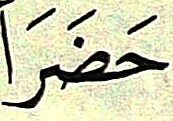 حَضَرَا